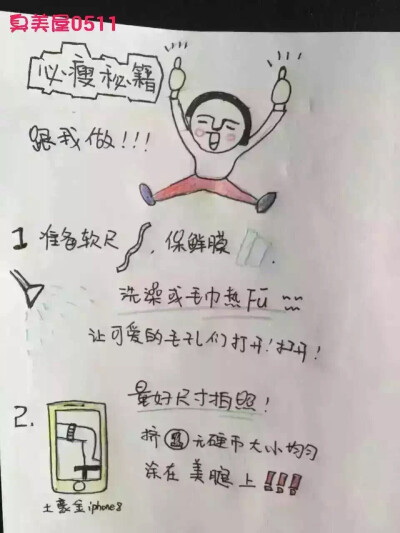 真美屋0511
必瘦秘籍
跟我做!!!
1 准备软尺 , 保鲜膜 .
洗澡或毛巾热Fū ~~
让可爱的毛孔们打开!打开!
2. 量好尺寸拍照!
挤 元硬币大小均匀
涂在美腿上!!!
土豪金iphone8